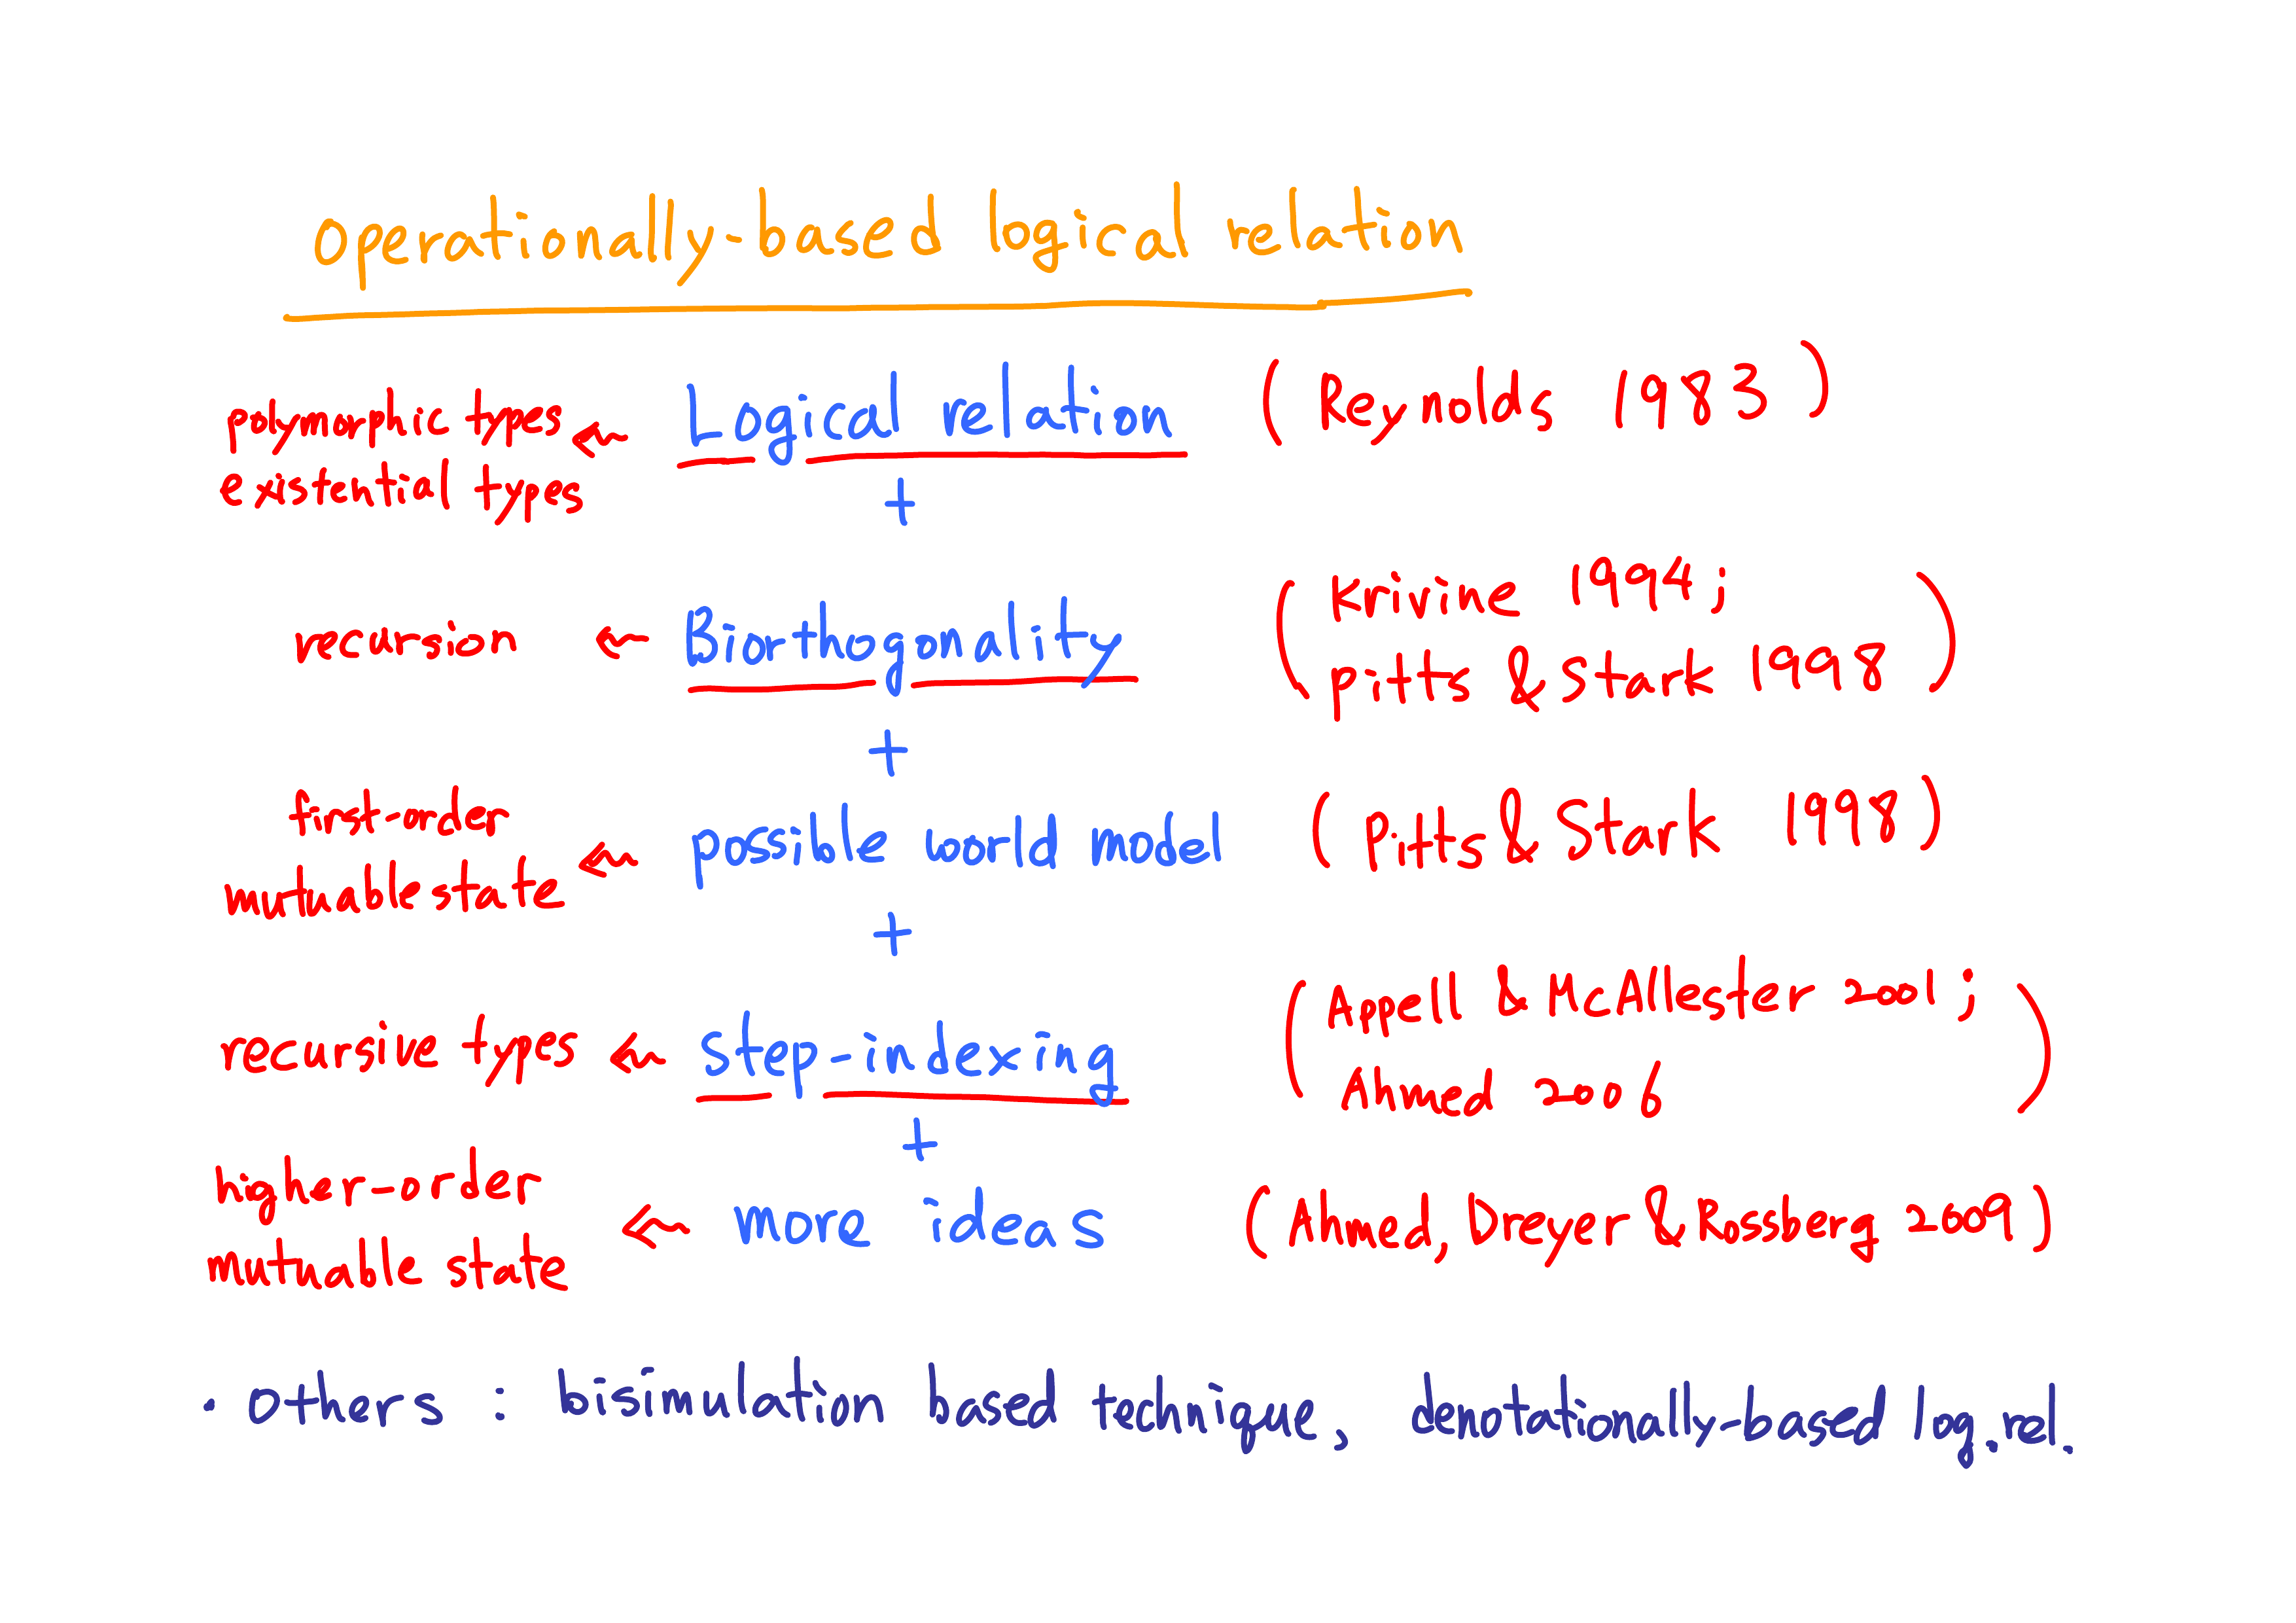 operationally-based logical relation
polymorphic types ← Logical relation (Reynolds 1983)
existential types
+
recursion ← Biorthogonality (Krivine 1994;
Pitts & Stark 1998)
+
first-order
mutuable state ← possible world model (Pitts & Stark 1998)
+
recursive types ← step-indexing (Appell & McAllester 2001;
Ahmed 2006)
+
higher-order
mutuable state ← more ideas (Ahmed, Dreyer & Rossberg 2009)
· Others : bisimulation based technique, denotationally-based log.rel.